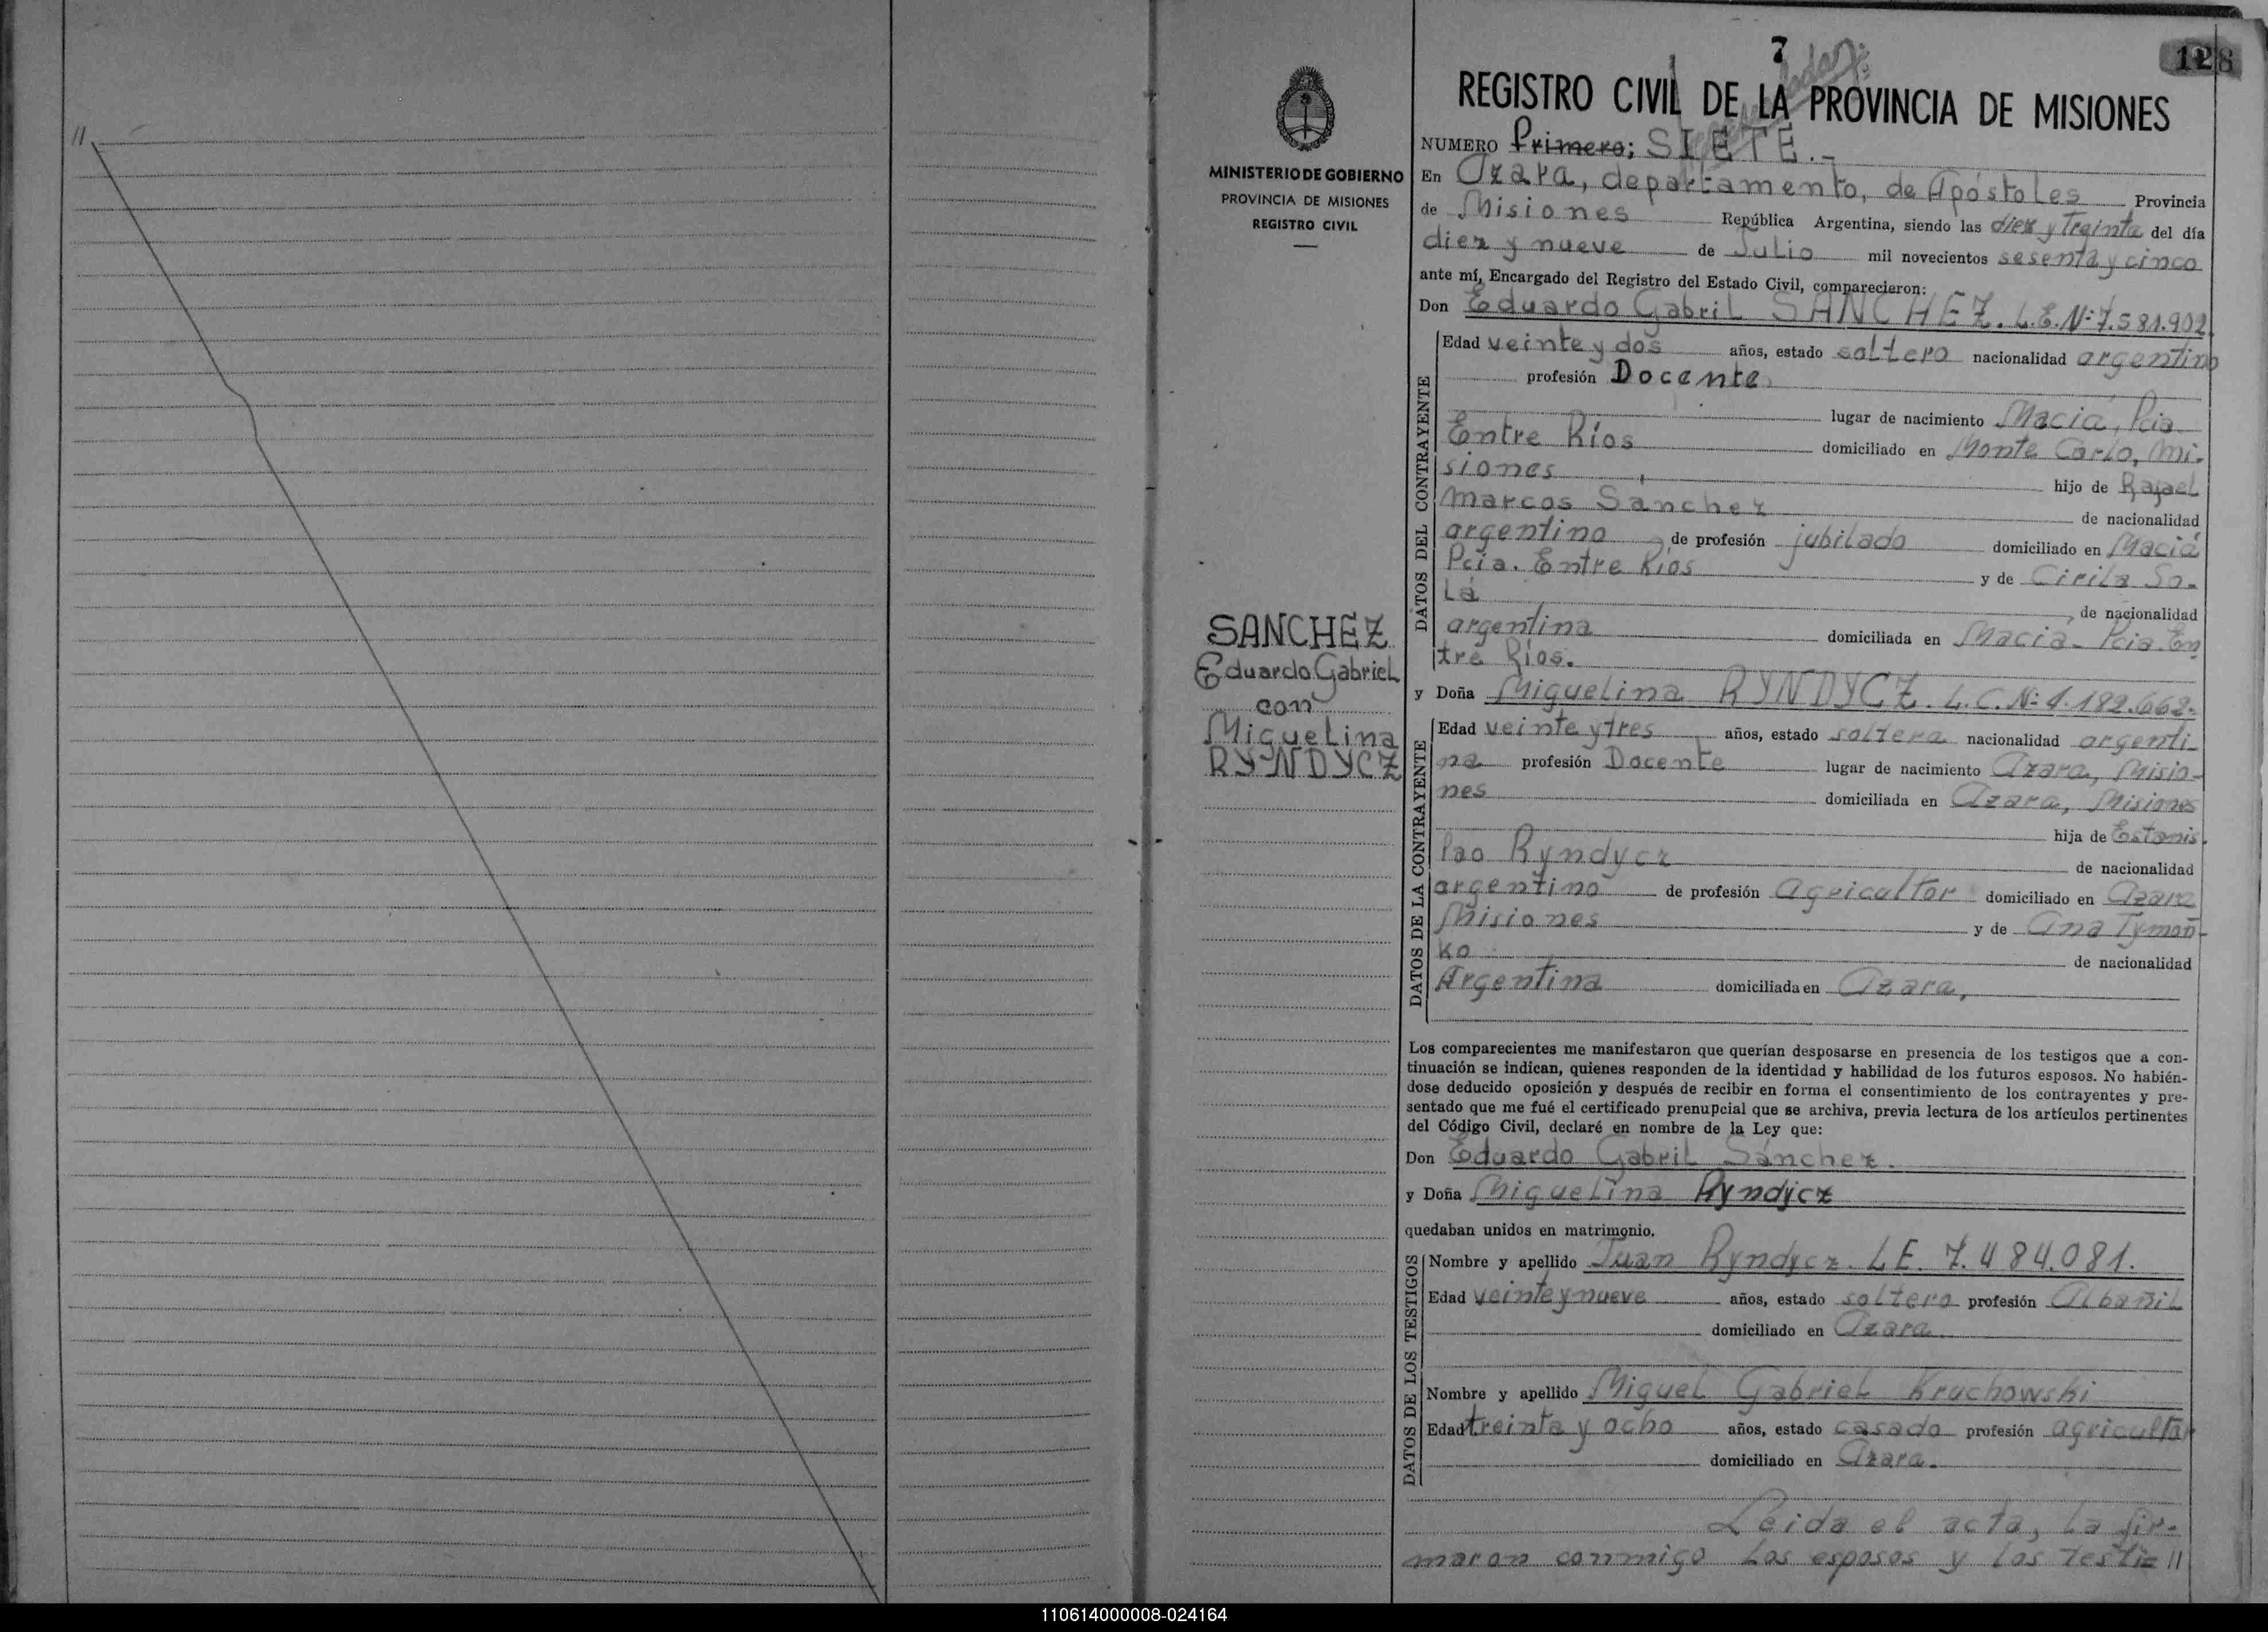 //
MINISTERIO DE GOBIERNO
PROVINCIA DE MISIONES
REGISTRO CIVIL
SANCHEZ
Eduardo Gabriel
con
Miguelina
RYNDYCZ
7
128
REGISTRO CIVIL DE LA PROVINCIA DE MISIONES
NUMERO Primero; SIETE.-
En Azara, departamento, de Apóstoles Provincia
de Misiones República Argentina, siendo las diez y treinta del día
diez y nueve de Julio mil novecientos sesenta y cinco
ante mí, Encargado del Registro del Estado Civil, comparecieron:
Don Eduardo Gabril SANCHEZ. L.E.Nº 7.581.902.
DATOS DEL CONTRAYENTE
Edad veinte y dos años, estado soltero nacionalidad argentino
profesión Docente
lugar de nacimiento Maciá, Pcia
Entre Ríos domiciliado en Monte Carlo, Mi-
siones hijo de Rafael
Marcos Sanchez de nacionalidad
argentino de profesión jubilado domiciliado en Maciá
Pcia. Entre Ríos y de Cirila So-
la de nacionalidad
argentina domiciliada en Maciá- Pcia. En
tre Ríos.
y Doña Miguelina RYNDYCZ. L.C.Nº 1.182.662-
DATOS DE LA CONTRAYENTE
Edad veinte y tres años, estado soltera nacionalidad argenti-
na profesión Docente lugar de nacimiento Azara, Misio-
nes domiciliada en Azara, Misiones
hija de Estanis-
lao Ryndycz de nacionalidad
argentino de profesión agricultor domiciliado en Azara
Misiones y de Ana Tymoñ-
ko de nacionalidad
Argentina domiciliada en Azara,
Los comparecientes me manifestaron que querían desposarse en presencia de los testigos que a con-
tinuación se indican, quienes responden de la identidad y habilidad de los futuros esposos. No habién-
dose deducido oposición y después de recibir en forma el consentimiento de los contrayentes y pre-
sentado que me fué el certificado prenupcial que se archiva, previa lectura de los artículos pertinentes
del Código Civil, declaré en nombre de la Ley que:
Don Eduardo Gabril Sánchez.
y Doña Miguelina Ryndycz
quedaban unidos en matrimonio.
DATOS DE LOS TESTIGOS
Nombre y apellido Juan Ryndycz. L E. 7.484.081.
Edad veinte y nueve años, estado soltero profesión Albañil
domiciliado en Azara
Nombre y apellido Miguel Gabriel Kruchowski
Edad treinta y ocho años, estado casado profesión agricultor
domiciliado en Azara.
Leida el acta, la fir-
maron conmigo los esposos y los testi= //
110614000008-024164